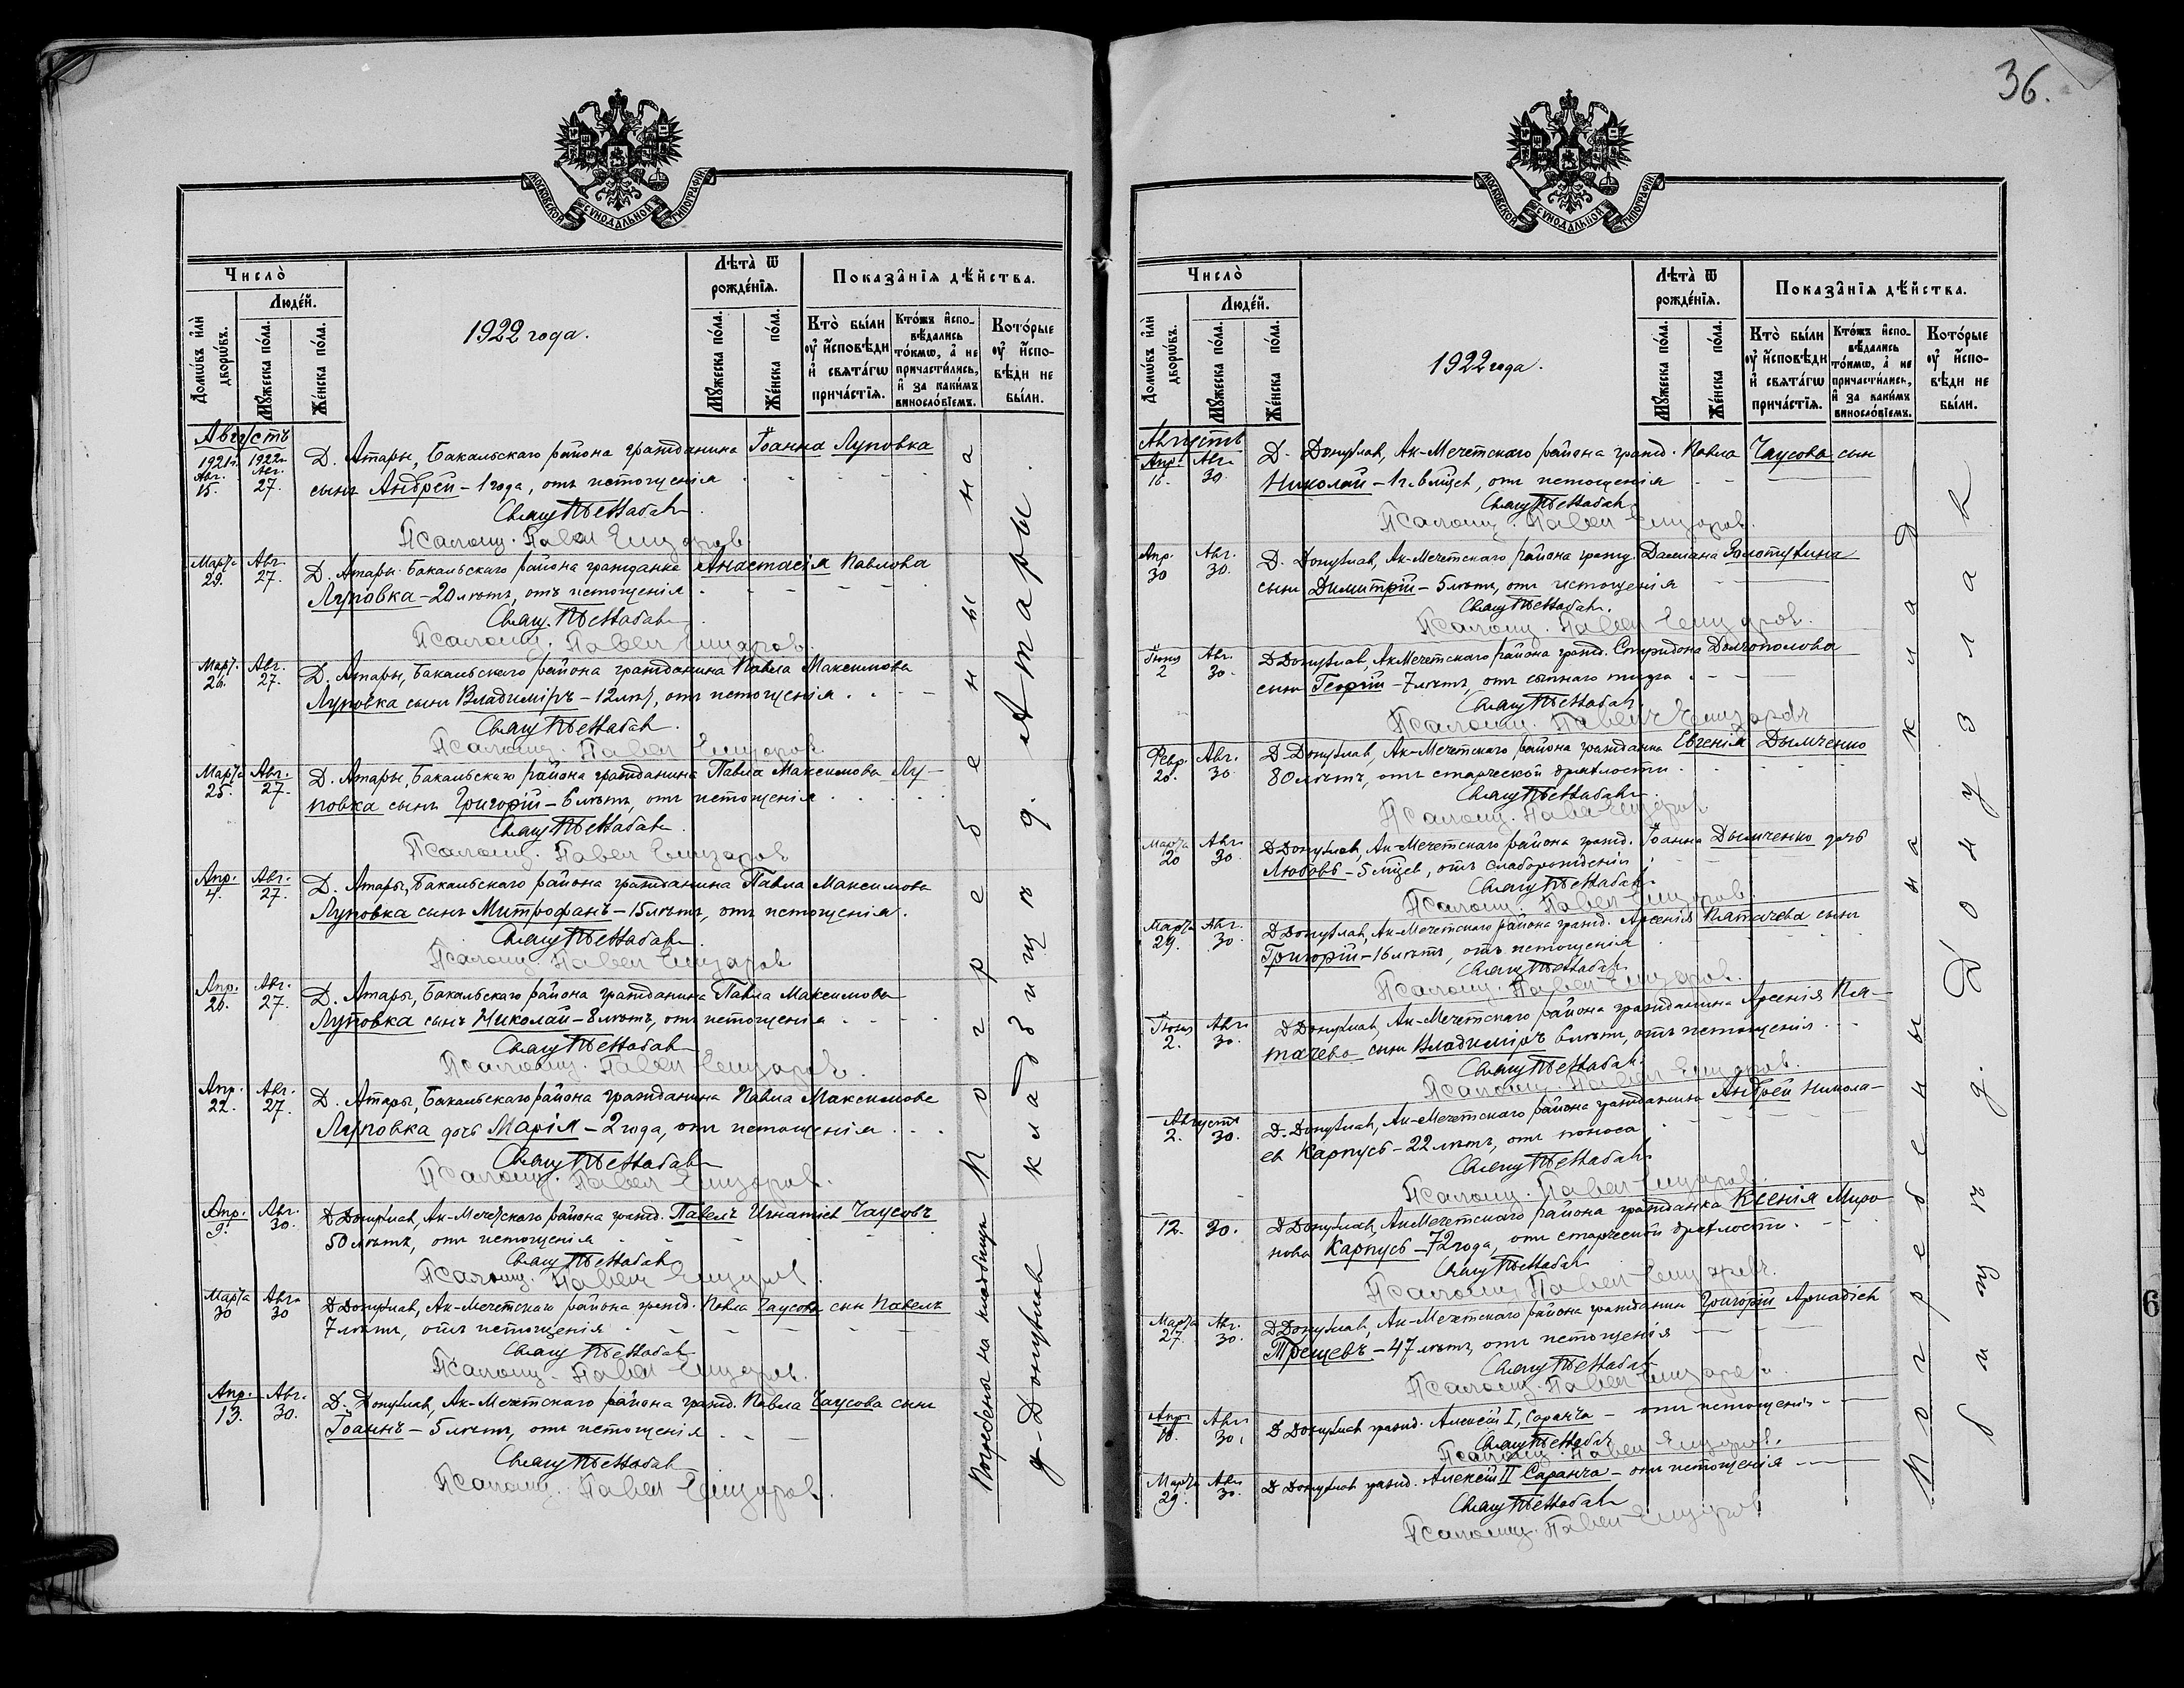 36.
МОСКОВСКОЙ СѴНОДАЛЬНОЙ ТИПОГРАФІИ
Число̀
Людéй.
Домѡ́въ и҆лѝ дворѡ́въ.
Мꙋ́жеска по́ла.
Же́нска по́ла.
1922 года.
Лѣта̀ ѿ рожде́нїѧ.
Мꙋ́жеска по́ла.
Же́нска по́ла.
Показа̑нїѧ дѣ́йства.
Кто̀ бы́ли ᲂу҆ и҆сповѣди и҆ свѧта́гѡ прича́стїѧ.
Кто́жъ и҆спо- вѣ́дались то́кмѡ, а҆ не причасти́лись, и҆ за каки́мъ винослове́їемъ.
Кото́рые ᲂу҆ и҆спо- вѣди не бы́ли.
Августъ
1921г. Авг. 15. 1922г. Авг. 27.
Д. Атары, Бакальскаго района гражданина Іоанна Луповка
сынъ Андрей – 1 года, отъ истощенія
Свящ
Псаломщ. Павел
Марта 29. Авг. 27.
Д. Атары Бакальскаго района гражданка Анастасія Павлова
Луповка – 20 лѣтъ, отъ истощенія
Свящ.
Псаломщ. Павел
Март. 26. Авг. 27.
Д. Атары, Бакальскаго района гражданина Павла Максимова
Луповка сынъ Владиміръ – 12 лѣт, отъ истощенія
Свящ
Псаломщ. Павел
Марта 25. Авг. 27.
Д. Атары, Бакальскаго района гражданина Павла Максимова Лу–
повка сынъ Григорій – 6 лѣтъ, отъ истощенія
Свящ
Псаломщ. Павел
Апр. 4. Авг. 27.
Д. Атары, Бакальскаго района гражданина Павла Максимова
Луповка сынъ Митрофанъ – 15 лѣтъ, отъ истощенія.
Свящ
Псаломщ. Павел
Апр. 20. Авг. 27.
Д. Атары, Бакальскаго района гражданина Павла Максимова
Луповка сынъ Николай – 8 лѣтъ, отъ истощенія
Свящ
Псаломщ. Павел
Апр. 22. Авг. 27.
Д. Атары, Бакальскаго района гражданина Павла Максимова
Луповка дочь Марія – 2 года, отъ истощенія
Свящ
Псаломщ. Павел
Апр. 9. Авг. 30.
Д Донузлав, Ак-Мечетскаго района гражд. Павелъ Игнатіев Чаусовъ
50 лѣтъ, отъ истощенія
Свящ
Псаломщ. Павел
Марта 30 Авг. 30
Д Донузлав, Ак-Мечетскаго района гражд. Павла Чаусова сын Павелъ
7 лѣтъ, отъ истощенія
Свящ
Псаломщ. Павел
Апр. 13. Авг. 30.
Д. Донузлав, Ак-Мечетскаго района гражд. Павла Чаусова сынъ
Іоаннъ – 5 лѣтъ, отъ истощенія
Свящ
Псаломщ. Павел
Погребены на
кладбищѣ д. Атары.
Погребены на кладбищѣ
д. Донузлав
МОСКОВСКОЙ СѴНОДАЛЬНОЙ ТИПОГРАФІИ
Число̀
Людéй.
Домѡ́въ и҆лѝ дворѡ́въ.
Мꙋ́жеска по́ла.
Же́нска по́ла.
1922 года.
Лѣта̀ ѿ рожде́нїѧ.
Мꙋ́жеска по́ла.
Же́нска по́ла.
Показа̑нїѧ дѣ́йства.
Кто̀ бы́ли ᲂу҆ и҆сповѣди и҆ свѧта́гѡ прича́стїѧ.
Кто́жъ и҆спо- вѣ́дались то́кмѡ, а҆ не причасти́лись, и҆ за каки́мъ винослове́їемъ.
Кото́рые ᲂу҆ и҆спо- вѣди не бы́ли.
Августъ
Апр. 16. Авг. 30.
Д. Донузлав, Ак-Мечетскаго района гражд. Павла Чаусова сын
Николай – 1 г. 6 мцев, отъ истощенія
Свящ
Псаломщ. Павел
Апр. 30 Авг. 30.
Д. Донузлав, Ак-Мечетскаго района гражд. Даміана Золотухина
сынъ Димитрій – 5 лѣтъ, отъ истощенія
Свящ
Псаломщ. Павел
Іюня 2 Авг. 30.
Д Донузлав, Ак Мечетскаго района гражд. Спиридона Долгополова
сынъ Георгій – 7 лѣтъ, отъ сыпнаго тифа
Свящ
Псаломщ. Павелъ
Февр. 20. Авг. 30
Д Донузлав, Ак-Мечетскаго района гражданка Евгенія Дымченко
80 лѣтъ, отъ старческой дряхлости
Свящ
Псаломщ. Павел
Марта 20 Авг. 30
Д Донузлав, Ак-Мечетскаго района гражд. Іоанна Дымченко дочь
Любовь – 5 мцев, отъ слаборожденія
Свящ
Псаломщ. Павел
Марта 29. Авг. 30
Д Донузлав, Ак-Мечетскаго района гражд. Арсенія Пятачева сынъ
Григорій – 16 лѣтъ, отъ истощенія
Свящ
Псаломщ. Павел
Іюня 2. Авг. 30.
Д Донузлав, Ак-Мечетскаго района гражданина Арсенія Пя–
тачева сынъ Владиміръ 6 лѣтъ, отъ истощенія
Свящ
Псаломщ. Павел
Августа 2. 30.
Д. Донузлав, Ак-Мечетскаго района гражданинъ Андрей Никола–
ев Карпусь – 22 лѣтъ, отъ поноса
Свящ
Псаломщ. Павел
12. 30.
Д Донузлав, Ак Мечетскаго района гражданка Ксенія Миро
нова Карпусь – 72 года, отъ старческой дряхлости
Свящ
Псаломщ. Павел
Марта 27. Авг. 30.
Д Донузлав, Ак-Мечетскаго района гражданин Григорій Аркадіев
Трещевъ – 47 лѣтъ, отъ истощенія
Свящ
Псаломщ. Павел
Апр. 10. Авг. 30.
Д Донузлав гражд. Алексій I, Саранча – отъ истощенія
Свящ
Псаломщ. Павел
Марта 29. Авг. 30.
Д Донузлав гражд. Алексій II Саранча – отъ истощенія
Свящ
Псаломщ. Павел
Погребены на клад
бищѣ д. Донузлав
6